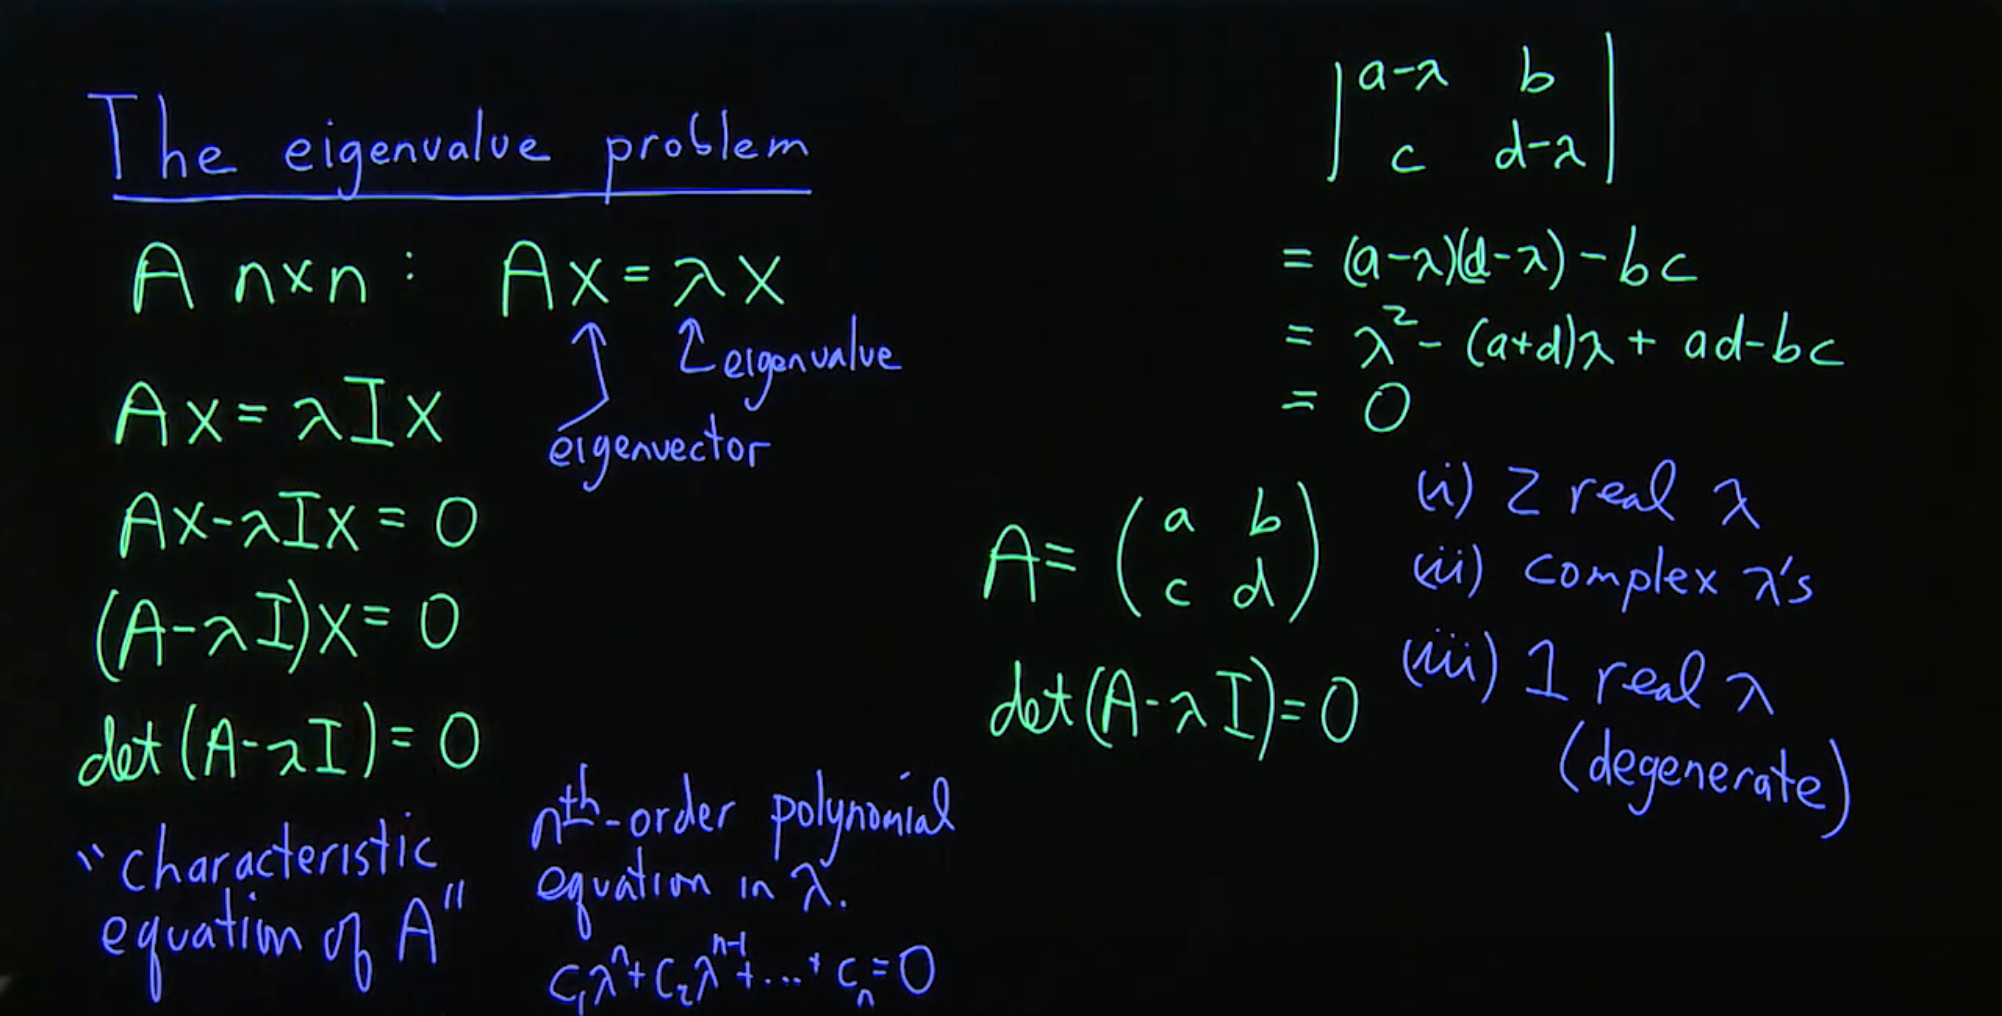 The eigenvalue problem
A n×n : Ax = λx
eigenvalue
eigenvector
Ax = λIx
Ax-λIx = 0
(A-λI)x = 0
det(A-λI) = 0
"characteristic
equation of A"
nth-order polynomial
equation in λ.
c₁λⁿ + c₂λⁿ⁻¹ + ... + cₙ = 0
|a-λ b|
|c d-λ|
= (a-λ)(d-λ) - bc
= λ² - (a+d)λ + ad-bc
= 0
A = (a b
c d)
det(A-λI) = 0
(i) 2 real λ
(ii) complex λ's
(iii) 1 real λ
(degenerate)